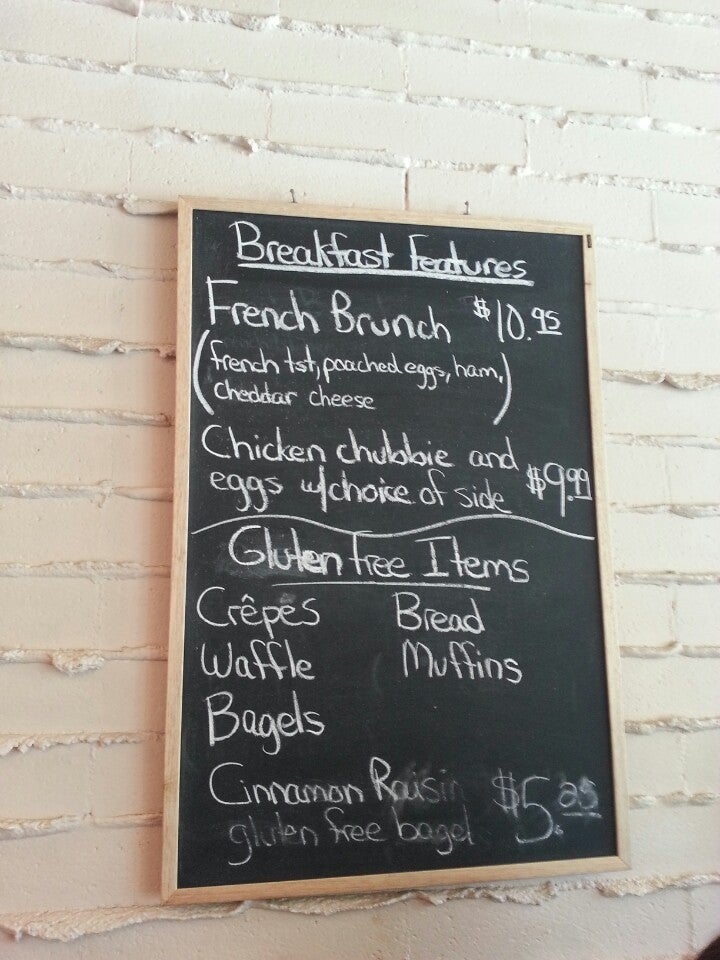 Breakfast Features
French Brunch $10.95
(french tst, poached eggs, ham,
cheddar cheese)
Chicken chubbie and
eggs w/choice of side $9.99
Gluten free Items
Crêpes Bread
Waffle Muffins
Bagels
Cinnamon Raisin $5.25
gluten free bagel